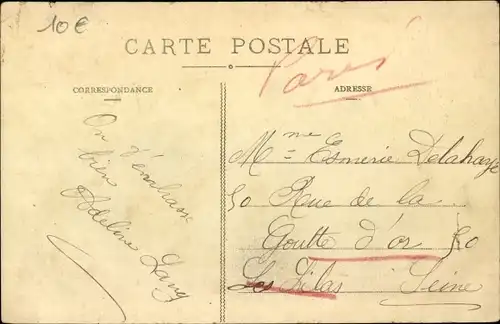 10€
CARTE POSTALE
Paris
CORRESPONDANCE
ADRESSE
On t'embrasse
bien
Adeline Lang
Mme Esmerie Delahaye
50 Rue de la
Goutte d'or 50
Les Lilas Seine